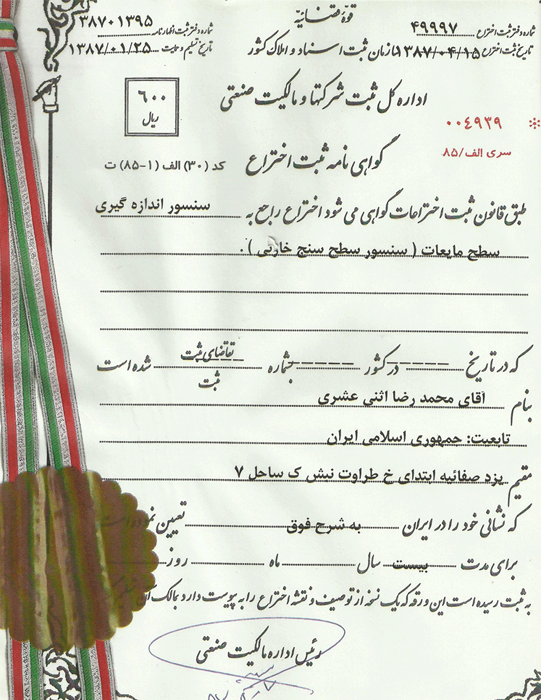 قوهٔ قضائیه
شماره دفتر ثبت اختراع ۴۹۹۹۷
شماره دفتر ثبت اظهارنامه ۳۸۷۰۱۳۹۵
تاریخ ثبت اختراع ۱۳۸۷/۰۴/۱۵
سازمان ثبت اسناد و املاک کشور
تاریخ تسلیم و حمایت ۱۳۸۷/۰۱/۲۵
اداره کل ثبت شرکتها و مالکیت صنعتی
۶۰۰
ریال
۰۰۴۹۳۹
سری الف/۸۵
گواهی نامه ثبت اختراع
کد (۳۰) الف (۱-۸۵) ت
طبق قانون ثبت اختراعات گواهی می شود اختراع راجع به سنسور اندازه گیری
سطح مایعات ( سنسور سطح سنج خازنی ) .
که در تاریخ ----- در کشور ----- بشماره ----- تقاضای ثبت شده است
ثبت
بنام آقای محمد رضا اثنی عشری
تابعیت: جمهوری اسلامی ایران
مقیم یزد صفائیه ابتدای خ طراوت نبش ک ساحل ۷
که نشانی خود را در ایران به شرح فوق تعیین نموده است
برای مدت بیست سال ---- ماه ---- روز
به ثبت رسیده است این ورقه که یک نسخه از توصیف و نقشه اختراع را به پیوست دارد بمالک آن
رئیس اداره مالکیت صنعتی